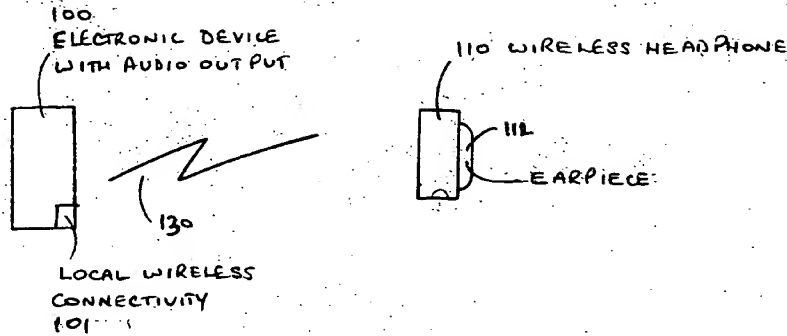 100
ELECTRONIC DEVICE
WITH AUDIO OUTPUT
110 WIRELESS HEADPHONE
112
EARPIECE
130
LOCAL WIRELESS
CONNECTIVITY
101